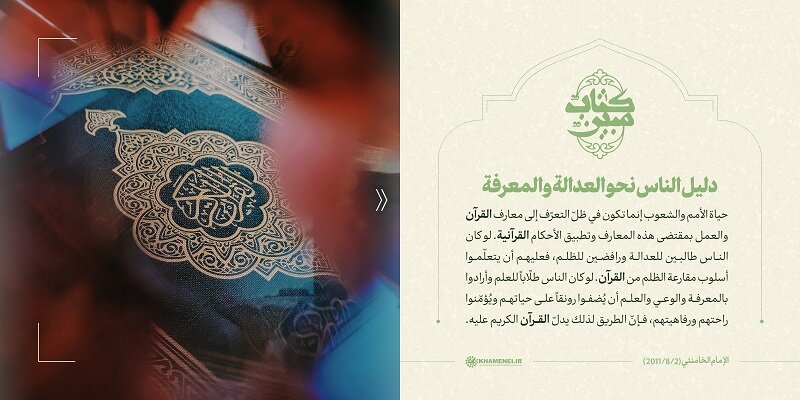 كتاب
مبين
دليل الناس نحو العدالة والمعرفة
حياة الأمم والشعوب إنما تكون في ظلّ التعرّف إلى معارف القرآن
والعمل بمقتضى هذه المعارف وتطبيق الأحكام القرآنية. لو كان
الناس طالبين للعدالة ورافضين للظلم، فعليهم أن يتعلّموا
أسلوب مقارعة الظلم من القرآن. لو كان الناس طلّاباً للعلم وأرادوا
بالمعرفة والوعي والعلم أن يُضفوا رونقاً على حياتهم ويُؤمّنوا
راحتهم ورفاهيتهم، فإنّ الطريق لذلك يدلّ القرآن الكريم عليه.
الإمام الخامنئي (2011/8/2)
KHAMENEI.IR